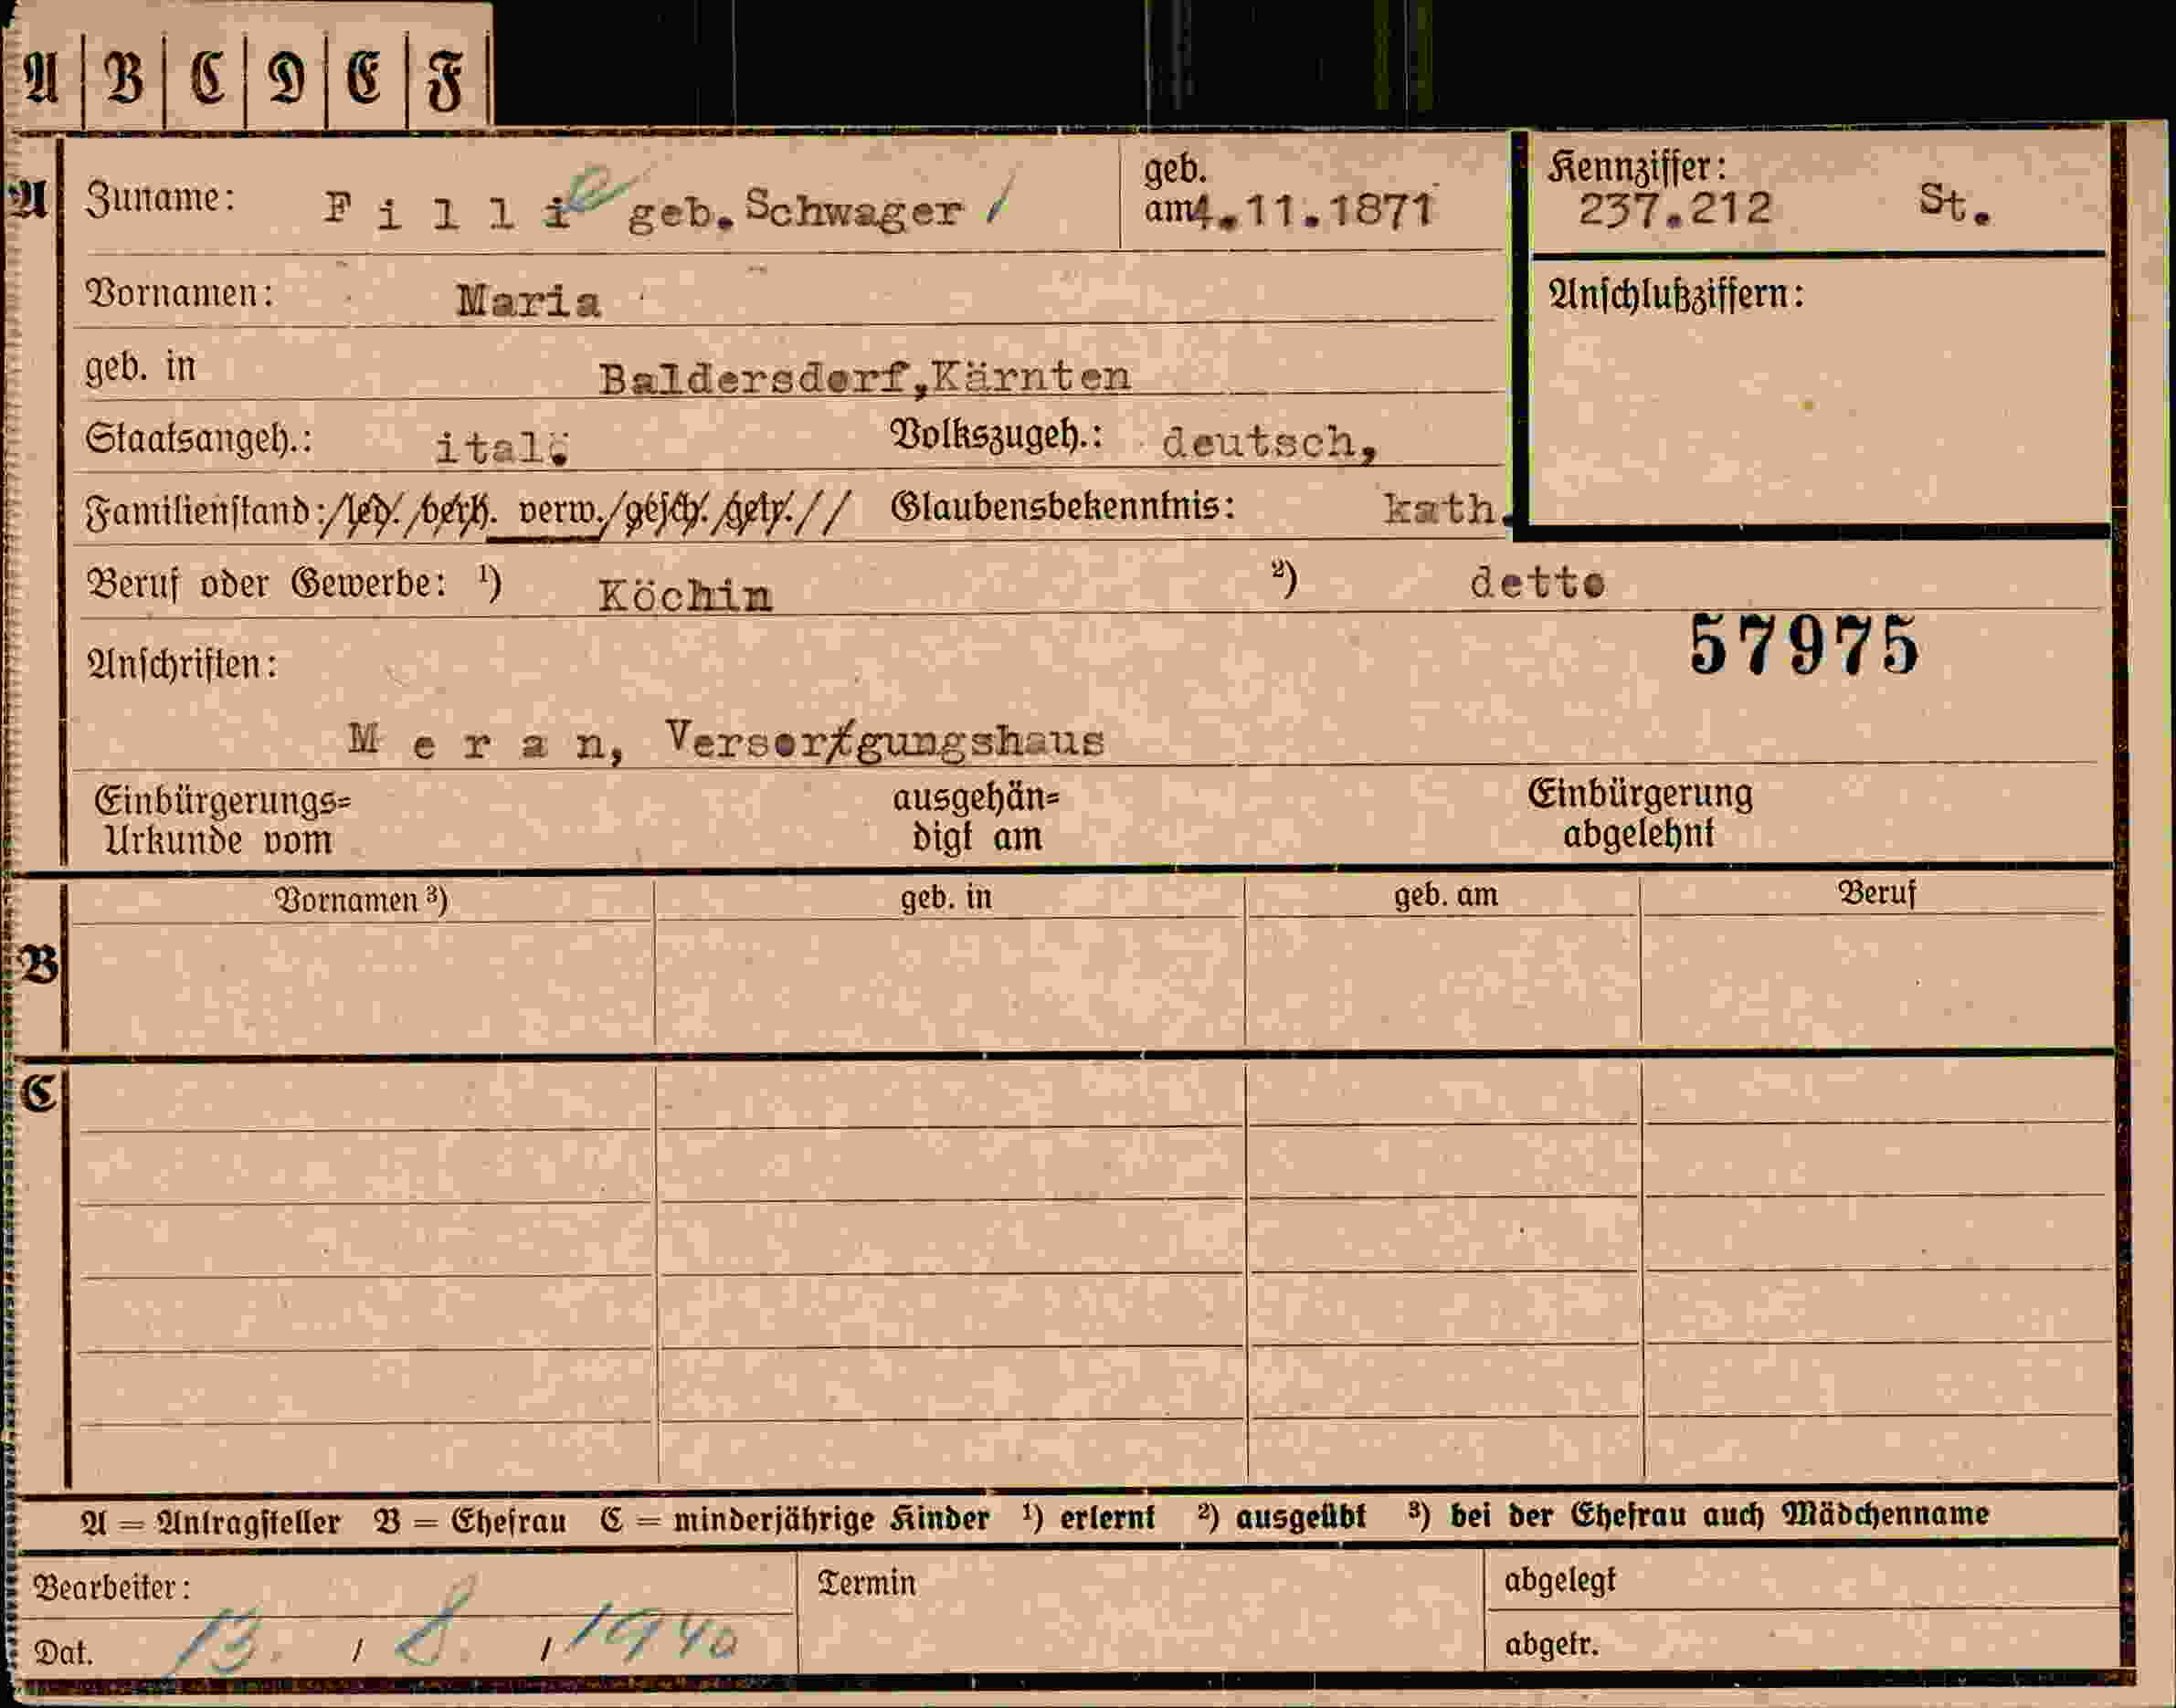 A B C D E F
A Zuname: Fille geb. Schwager / geb. am 4.11.1871 Kennziffer: 237.212 St.
Vornamen: Maria Anschlußziffern:
geb. in Baldersdorf, Kärnten
Staatsangeh.: ital. Volkszugeh.: deutsch,
Familienstand: led. verh. verw. gesch. getr. Glaubensbekenntnis: kath.
Beruf oder Gewerbe: ¹) Köchin ²) detto
57975
Anschriften:
Meran, Versorgungshaus
Einbürgerungs= ausgehän= Einbürgerung
Urkunde vom digt am abgelehnt
Vornamen ³) geb. in geb. am Beruf
B
C
A = Antragsteller B = Ehefrau C = minderjährige Kinder ¹) erlernt ²) ausgeübt ³) bei der Ehefrau auch Mädchenname
Bearbeiter: Termin abgelegt
Dat. 13. / 8. / 1940 abgetr.